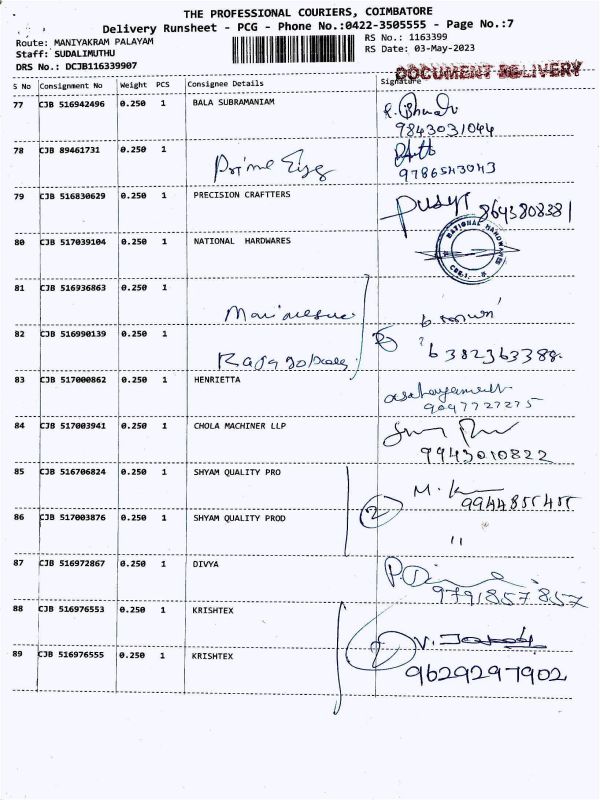 THE PROFESSIONAL COURIERS, COIMBATORE
Delivery Runsheet - PCG - Phone No.:0422-3505555 - Page No.:7
Route: MANIYAKRAM PALAYAM
RS No.: 1163399
Staff: SUDALIMUTHU
RS Date: 03-May-2023
DRS No.: DCJB116339907
DOCUMENT DELIVERY
S No Consignment No Weight PCS Consignee Details Signature
77 CJB 516942496 0.250 1 BALA SUBRAMANIAM
9843031044
78 CJB 89461731 0.250 1 Prime Eyes
9786543043
79 CJB 516830629 0.250 1 PRECISION CRAFTTERS
8643808381
80 CJB 517039104 0.250 1 NATIONAL HARDWARES
NATIONAL HARDWARES
81 CJB 516936863 0.250 1
82 CJB 516990139 0.250 1
6382363388
83 CJB 517000862 0.250 1 HENRIETTA
9047727275
84 CJB 517003941 0.250 1 CHOLA MACHINER LLP
9943010822
85 CJB 516706824 0.250 1 SHYAM QUALITY PRO
2
9944855455
86 CJB 517003876 0.250 1 SHYAM QUALITY PROD
"
87 CJB 516972867 0.250 1 DIVYA
9791857857
88 CJB 516976553 0.250 1 KRISHTEX
2
89 CJB 516976555 0.250 1 KRISHTEX
9629297902